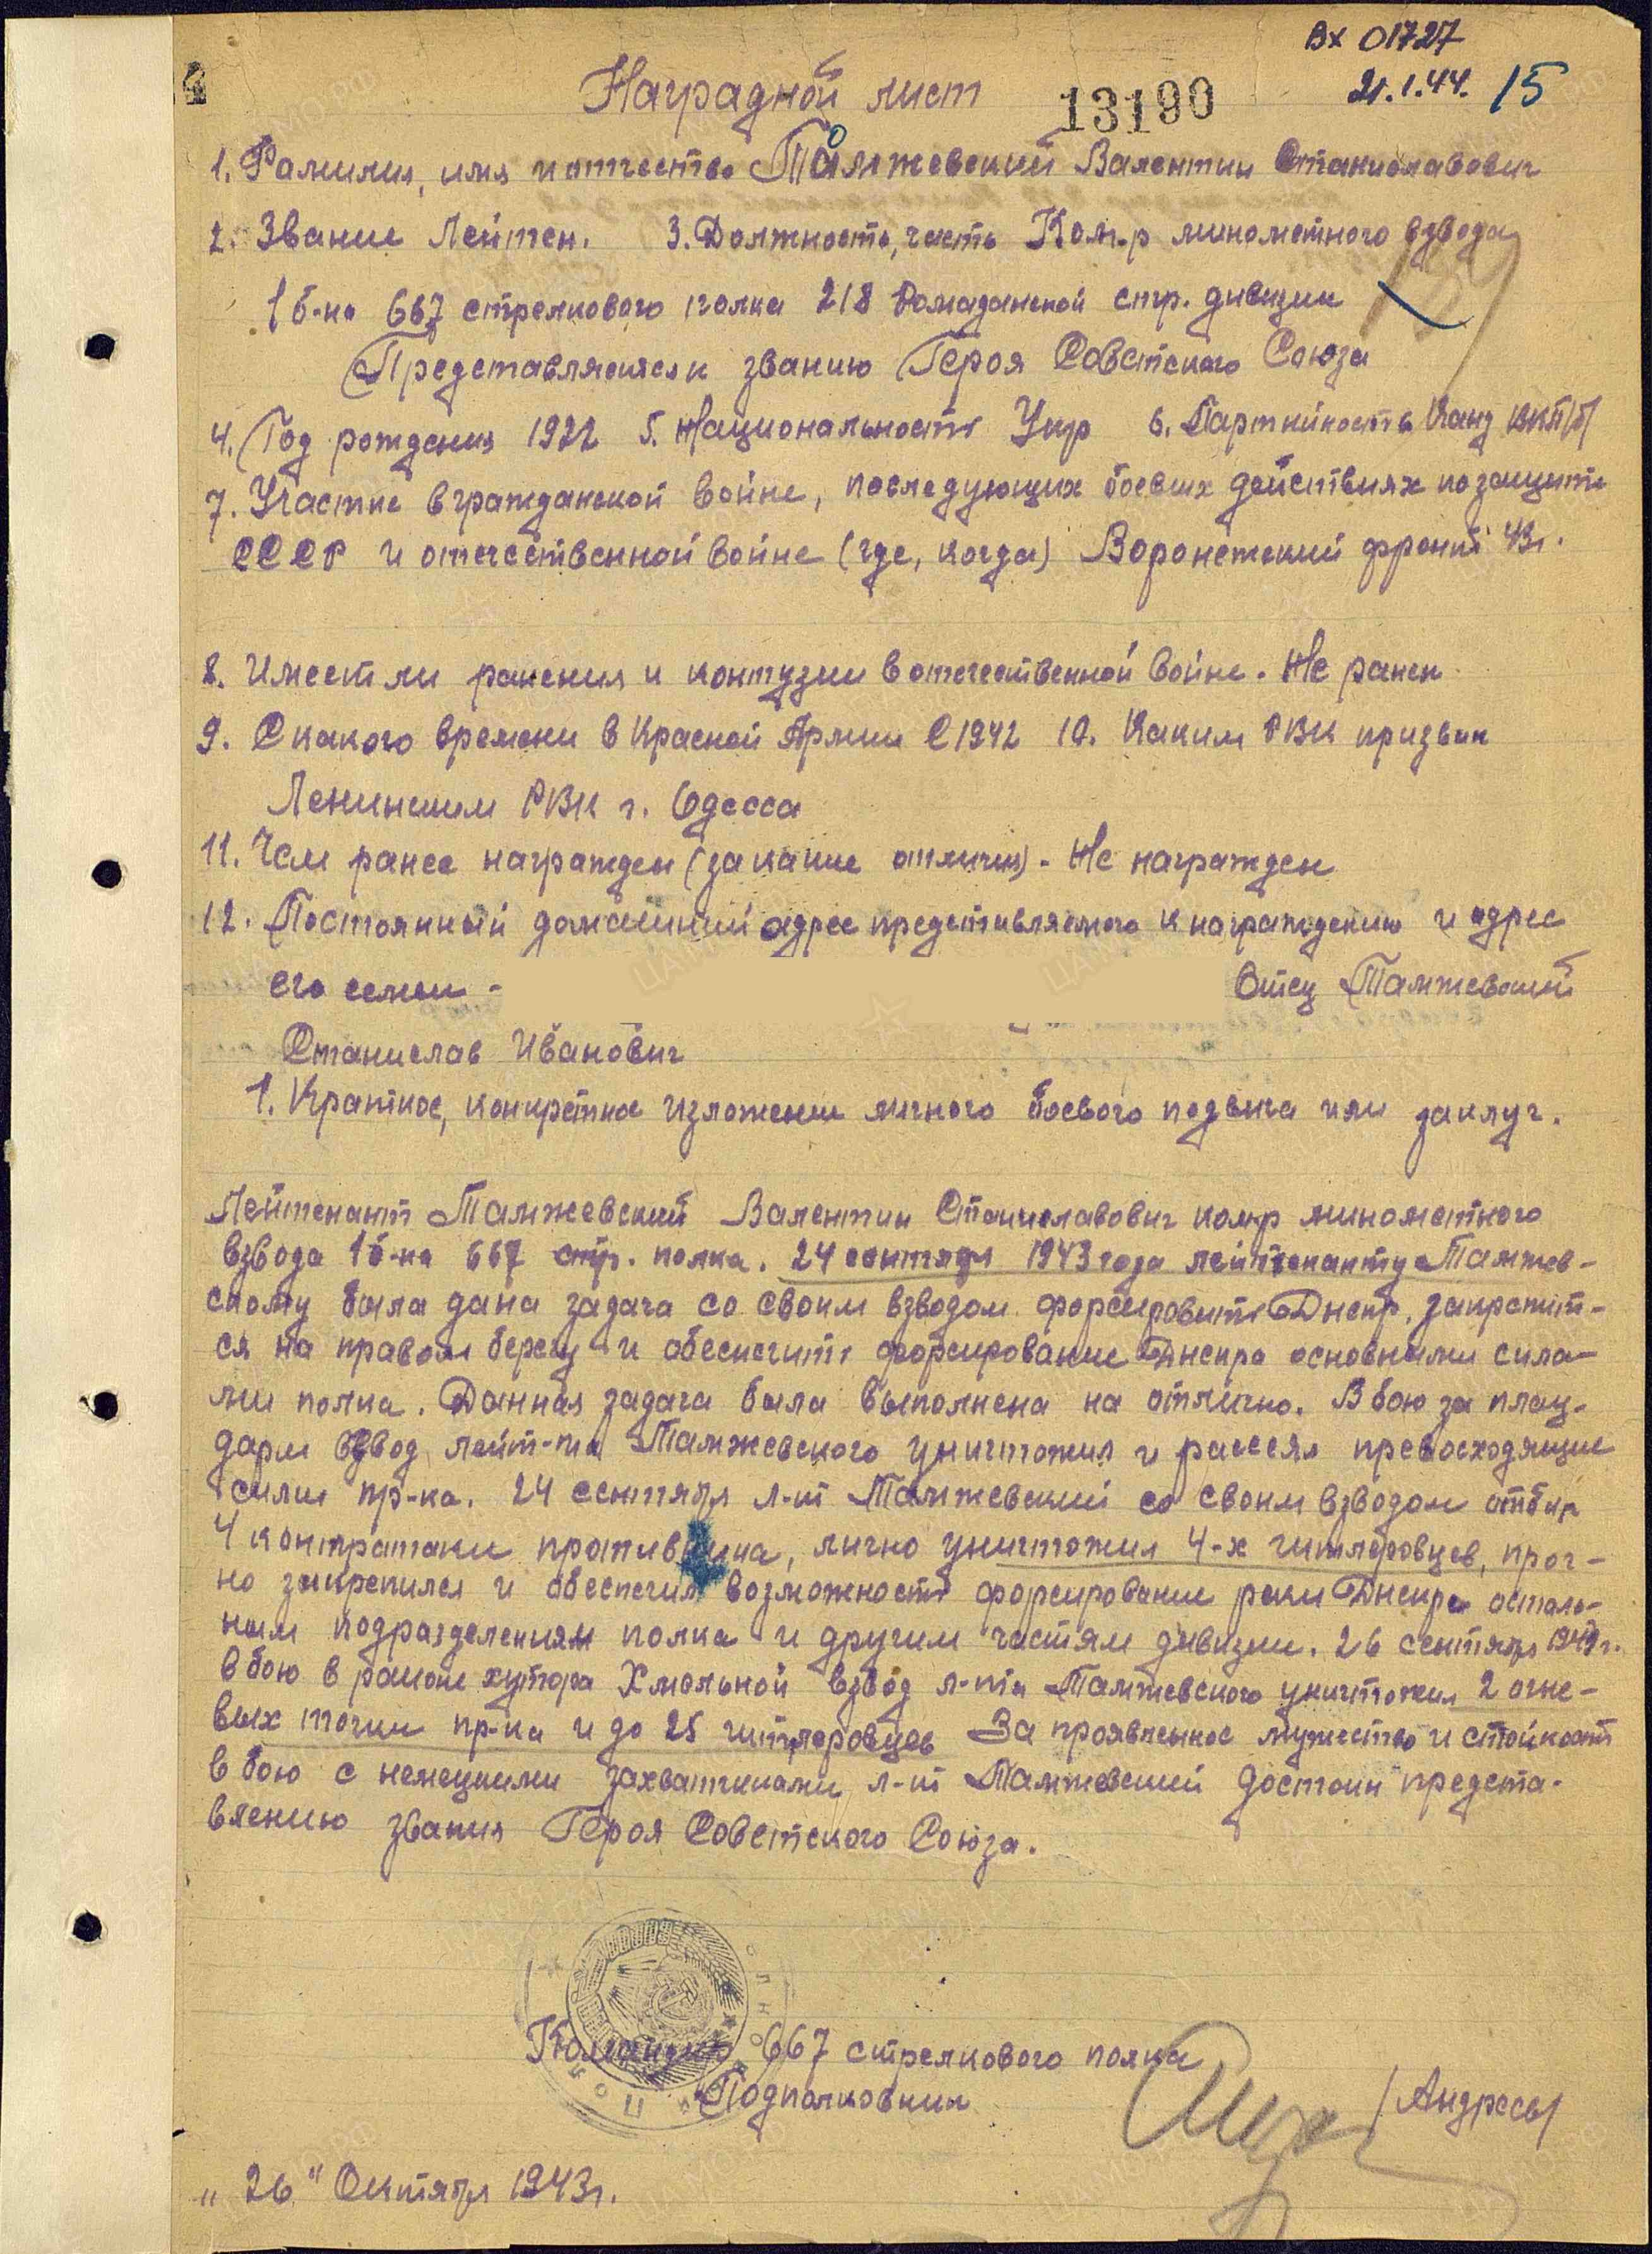 Вх 01727
21.1.44. 15
4
Наградной лист 13190
1. Фамилия, имя и отчество Томжевский Валентин Станиславович
2. Звание Лейтен. 3. Должность, часть Ком-р минометного взвода
1 б-на 667 стрелкового полка 218 Ромаданской стр. дивизии
Представляется к званию Героя Советского Союза
4. Год рождения 1922 5. Национальность Укр 6. Партийность Канд ВКП/б/
7. Участие в гражданской войне, последующих боевых действиях по защите
СССР и отечественной войне (где, когда) Воронежский фронт 43г.
8. Имеет ли ранения и контузии в отечественной войне. Не ранен
9. С какого времени в Красной Армии С 1942 10. Каким РВК призван
Лениншим РВК г. Одесса
11. Чем ранее награжден (за какие отличия) - Не награжден
12. Постоянный домашний адрес представляемого к награждению и адрес
его семьи - Отец Тамжевский
Станислав Иванович
1. Краткое, конкретное изложение личного боевого подвига или заслуг.
Лейтенант Тамжевский Валентин Станиславович ком-р минометного
взвода 1 б-на 667 стр. полка. 24 сентября 1943 года лейтенанту Тамжев-
скому была дана задача со своим взводом форсировать Днепр, закрепит-
ся на правом берегу и обеспечить форсирование Днепра основными сила-
ми полка. Данная задача была выполнена на отлично. В бою за плац-
дарм взвод лейт-та Тамжевского уничтожил и рассеял превосходящие
силы пр-ка. 24 сентября л-нт Тамжевский со своим взводом отбил
4 контратаки противника, лично уничтожил 4-х гитлеровцев, проч-
но закрепился и обеспечил возможность форсирование реки Днепра осталь-
ным подразделениям полка и другим частям дивизии. 26 сентября 1943 г.
в бою в районе хутора Хмельной взвод л-та Тамжевского уничтожил 2 огне-
вых точки пр-ка и до 25 гитлеровцев За проявленное мужество и стойкост
в бою с немецкими захватчиками л-нт Тамжевский достоин предста-
влению звания Героя Советского Союза.
Командир 667 стрелкового полка
Подполковник /Андреев/
"26" Октября 1943г.